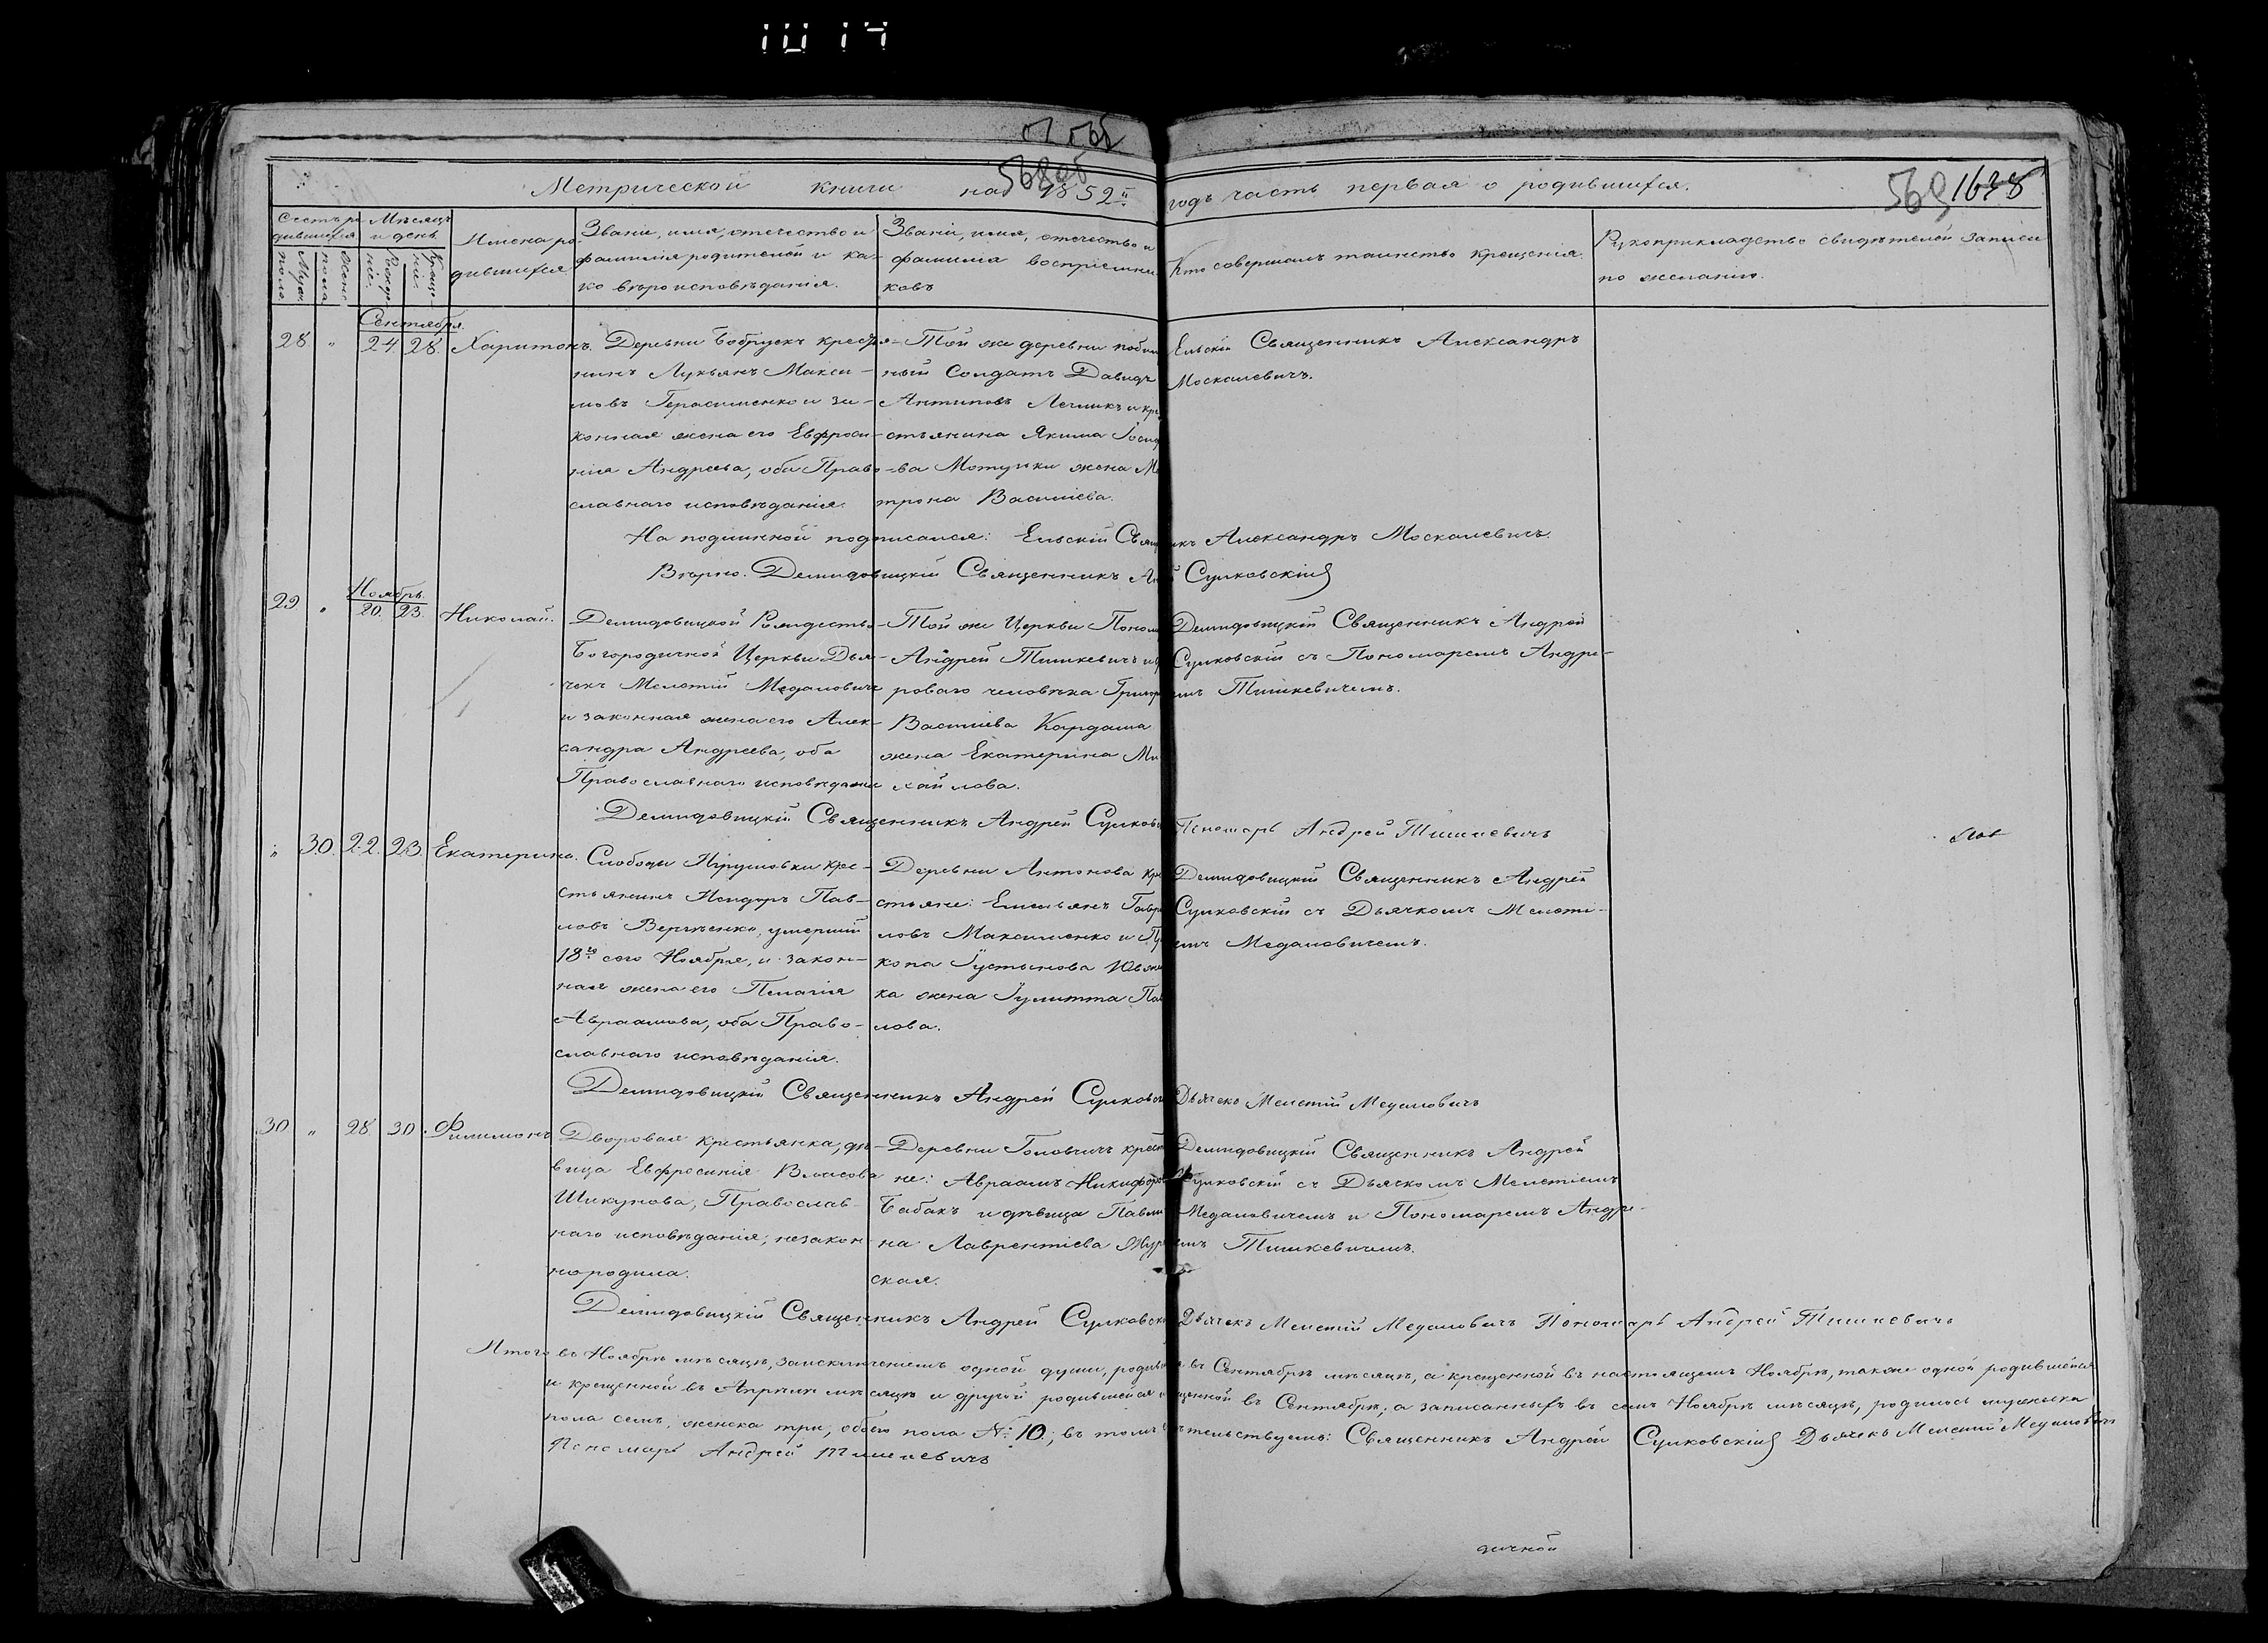 1014
568об
Метрической книги на 1852й годъ часть первая о родившихся.
569 1638
Счетъ родившихся
Мѣсяцъ и день
Имена родившихся
Званіе, имя, отечество и
фамилія родителей и ка-
ко вѣроисповѣданія.
Званіе, имя, отечество и
фамилія воспріемни
ковъ
Кто совершалъ таинство крещенія.
Рукоприкладство свидѣтелей записи
по желанію.
Муж. пола
Женс. пола
Рожде-нія.
Креще-нія.
Сентября.
28 " 24. 28. Харитонъ.
Деревни Бобрускъ крестья-
нинъ Лукьянъ Макси-
мовъ Герасименко и за-
конная жена его Евфроси-
нія Андреева, оба Право-
славнаго исповѣданія.
Той же деревни
ный Солдатъ Давидъ
Антиповъ и кре
стьянина Якима
ва Мотузки жена Ма
трона Василіева.
Ельскій Священникъ Александръ
Москалевичъ.
На подлинной подписался: Ельскій Священникъ Александръ Москалевичъ.
Вѣрно. Демидовицкій Священникъ Анд Сулковскій
Ноябрь.
29. " 20. 23. Николай.
Демидовицкой Рождество-
Богородичной Церкви Дья-
чекъ Мелетій Медаловичъ
и законная жена его Алек-
сандра Андреева, оба
Православнаго исповѣданія
Той же Церкви Поном
Андрей Тишкевичъ и
роваго человѣка Григор
Василіева Кардаша
жена Екатерина Ми
хайлова.
Демидовицкій Священникъ Андрей
Сулковскій съ Пономаремъ Андре-
емъ Тишкевичемъ.
Демидовицкій Священникъ Андрей Сулковскій Пономарь Андрей Тишкевичъ
" 30. 22. 23. Екатерина.
Слободы крес-
стьянинъ Исидоръ Пав-
ловъ умершій
18го сего Ноября, и закон-
ная жена его Пелагія
Авраамова, оба Право-
славнаго исповѣданія.
Деревни Антонова кре
стьяне: Емельянъ Гаври
ловъ Максименко и Про
копа Іустинова
ка жена Іулитта Пав
лова.
Демидовицкій Священникъ Андрей
Сулковскій съ Дьячкомъ Мелеті-
емъ Медаловичемъ.
Демидовицкій Священникъ Андрей Сулковскій Дьячекъ Мелетій Медаловичъ
30 " 28. 30. Филимонъ
Дворовая крестьянка, дѣ-
вица Евфросинія Власова
Шикунова, Православ-
наго исповѣданія; незакон-
нородила.
Деревни Головчичъ крестья
не: Авраамъ Никифоровъ
Бабакъ и дѣвица Павли
на Лаврентіева
ская.
Демидовицкій Священникъ Андрей
Сулковскій съ Дьячкомъ Мелетіемъ
Медаловичемъ и Пономаремъ Андре-
емъ Тишкевичемъ.
Демидовицкій Священникъ Андрей Сулковскій Дьячекъ Мелетій Медаловичъ Пономарь Андрей Тишкевичъ
Итого въ Ноябрѣ мѣсяцѣ, за исключеніемъ одной души, родившейся въ Сентябрѣ мѣсяцѣ, а крещенной въ настоящемъ Ноябрѣ, также одной родившейся
и крещенной въ Апрѣлѣ мѣсяцѣ и другой родившейся и крещенной въ Сентябрѣ, а записанныхъ въ семъ Ноябрѣ мѣсяцѣ, родилось мужеска
пола семь, женска три, обоего пола № 10.; въ томъ свидѣтельствуемъ: Священникъ Андрей Сулковскій Дьячекъ Мелетій Медаловичъ
Пономарь Андрей Тишкевичъ
дичной